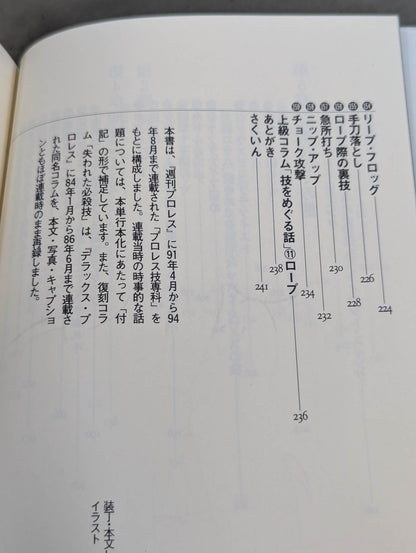 リープ・フロッグ 224
手刀落とし 226
ロープ際の裏技 228
急所打ち 230
ニップ・アップ 232
チョーク攻撃 234
上級コラム「技をめぐる話」⑪ロープ 236
あとがき 238
さくいん 241
本書は、『週刊プロレス』に91年4月から94
年8月まで連載された「プロレス技専科」を
もとに構成しました。連載当時の時事的な話
題については、本単行本化にあたって「付
記」の形で補足しています。また、復刻コラ
ム「失われた必殺技」は、『デラックス・プ
ロレス』に84年1月から86年6月まで連載さ
れた同名コラムを、本文・写真・キャプショ
ンともほぼ連載時のまま再録しました。
装丁・本文
イラスト